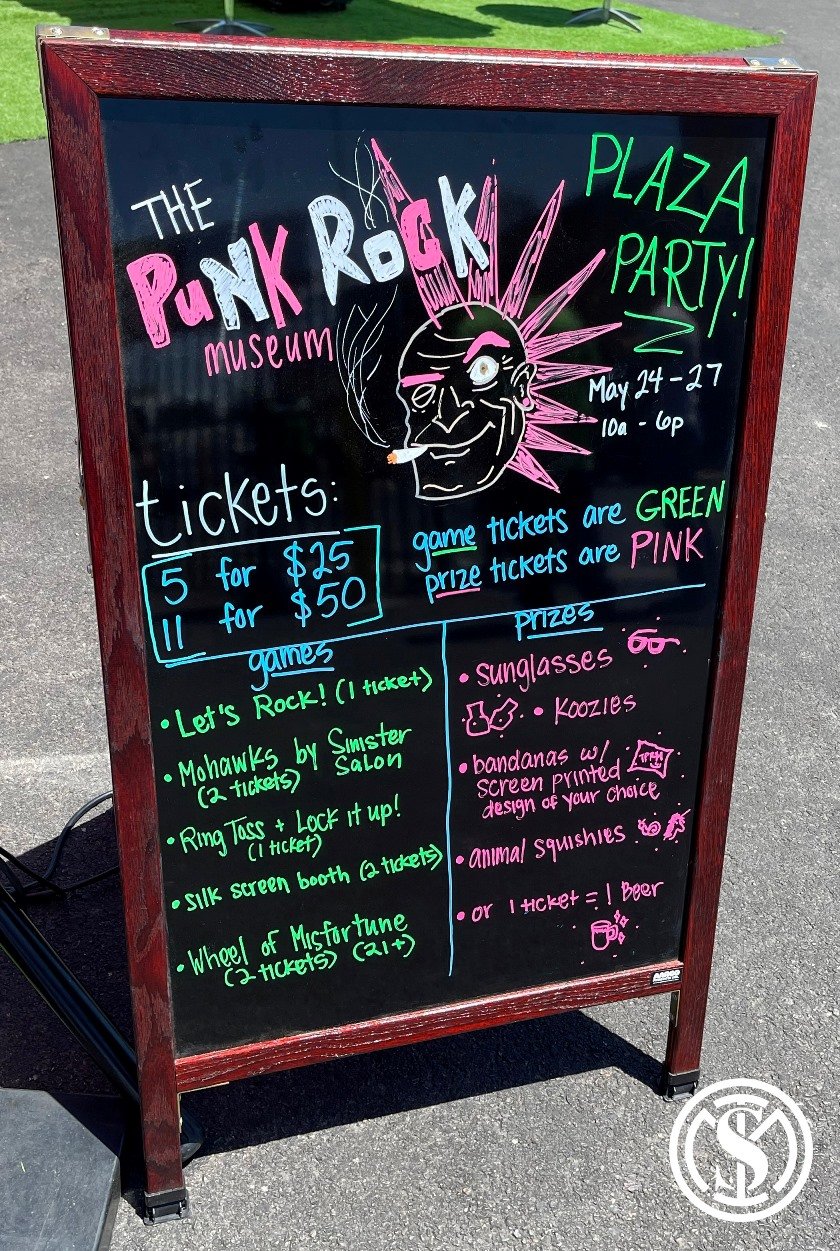 THE
PUNK ROCK
museum
PLAZA
PARTY!
May 24 - 27
10a - 6p
tickets:
5 for $25
11 for $50
game tickets are GREEN
prize tickets are PINK
games
• Let's Rock! (1 ticket)
• Mohawks by Sinister
Salon
(2 tickets)
• Ring Toss + Lock it up!
(1 ticket)
• Silk screen booth (2 tickets)
• Wheel of Misfortune
(2 tickets) (21+)
prizes
• sunglasses
• Koozies
• bandanas w/
screen printed
design of your choice
• animal squishies
• or 1 ticket = 1 Beer